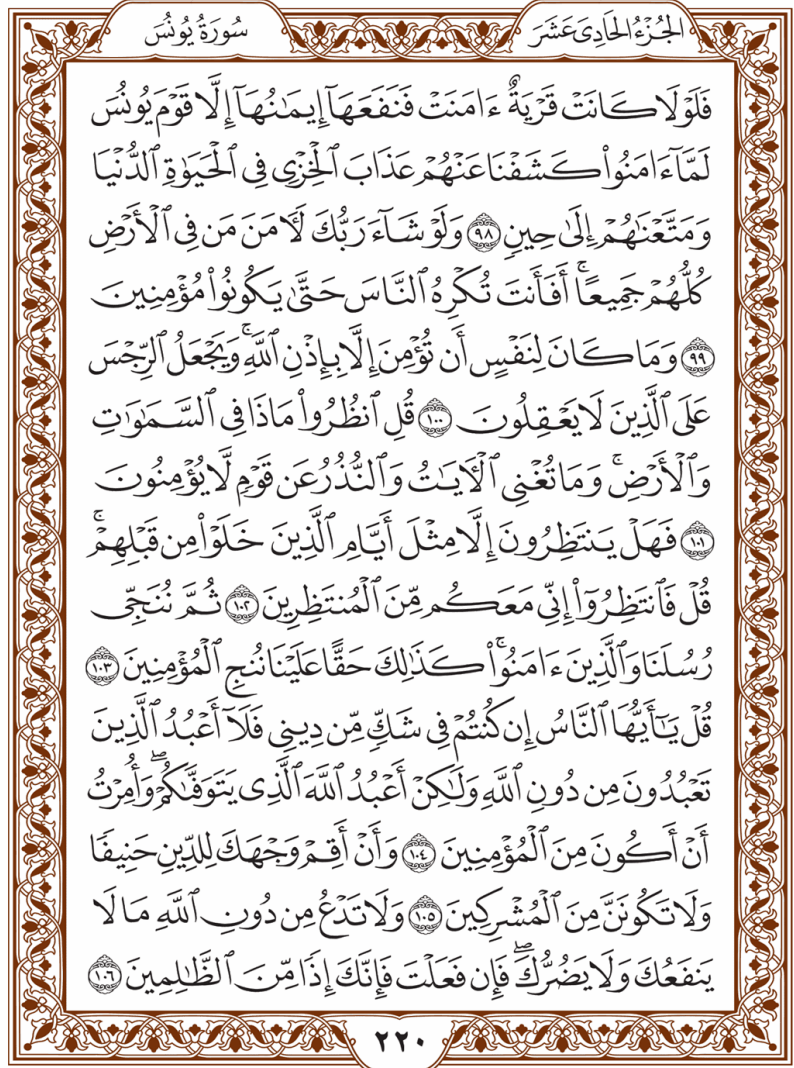 الجُزْءُ الحَادِى عَشَرَ
سُورَةُ يُونُسَ
فَلَوْلَا كَانَتْ قَرْيَةٌ ءَامَنَتْ فَنَفَعَهَآ إِيمَٰنُهَآ إِلَّا قَوْمَ يُونُسَ
لَمَّآ ءَامَنُوا۟ كَشَفْنَا عَنْهُمْ عَذَابَ ٱلْخِزْىِ فِى ٱلْحَيَوٰةِ ٱلدُّنْيَا
وَمَتَّعْنَٰهُمْ إِلَىٰ حِينٍ ٩٨ وَلَوْ شَآءَ رَبُّكَ لَـَٔامَنَ مَن فِى ٱلْأَرْضِ
كُلُّهُمْ جَمِيعًا ۚ أَفَأَنتَ تُكْرِهُ ٱلنَّاسَ حَتَّىٰ يَكُونُوا۟ مُؤْمِنِينَ
٩٩ وَمَا كَانَ لِنَفْسٍ أَن تُؤْمِنَ إِلَّا بِإِذْنِ ٱللَّهِ ۚ وَيَجْعَلُ ٱلرِّجْسَ
عَلَى ٱلَّذِينَ لَا يَعْقِلُونَ ١٠٠ قُلِ ٱنظُرُوا۟ مَاذَا فِى ٱلسَّمَٰوَٰتِ
وَٱلْأَرْضِ ۚ وَمَا تُغْنِى ٱلْـَٔايَٰتُ وَٱلنُّذُرُ عَن قَوْمٍ لَّا يُؤْمِنُونَ
١٠١ فَهَلْ يَنتَظِرُونَ إِلَّا مِثْلَ أَيَّامِ ٱلَّذِينَ خَلَوْا۟ مِن قَبْلِهِمْ ۚ
قُلْ فَٱنتَظِرُوٓا۟ إِنِّى مَعَكُم مِّنَ ٱلْمُنتَظِرِينَ ١٠٢ ثُمَّ نُنَجِّى
رُسُلَنَا وَٱلَّذِينَ ءَامَنُوا۟ ۚ كَذَٰلِكَ حَقًّا عَلَيْنَا نُنجِ ٱلْمُؤْمِنِينَ ١٠٣
قُلْ يَٰٓأَيُّهَا ٱلنَّاسُ إِن كُنتُمْ فِى شَكٍّ مِّن دِينِى فَلَآ أَعْبُدُ ٱلَّذِينَ
تَعْبُدُونَ مِن دُونِ ٱللَّهِ وَلَٰكِنْ أَعْبُدُ ٱللَّهَ ٱلَّذِى يَتَوَفَّىٰكُمْ ۖ وَأُمِرْتُ
أَنْ أَكُونَ مِنَ ٱلْمُؤْمِنِينَ ١٠٤ وَأَنْ أَقِمْ وَجْهَكَ لِلدِّينِ حَنِيفًا
وَلَا تَكُونَنَّ مِنَ ٱلْمُشْرِكِينَ ١٠٥ وَلَا تَدْعُ مِن دُونِ ٱللَّهِ مَا لَا
يَنفَعُكَ وَلَا يَضُرُّكَ ۖ فَإِن فَعَلْتَ فَإِنَّكَ إِذًا مِّنَ ٱلظَّٰلِمِينَ ١٠٦
٢٢٠